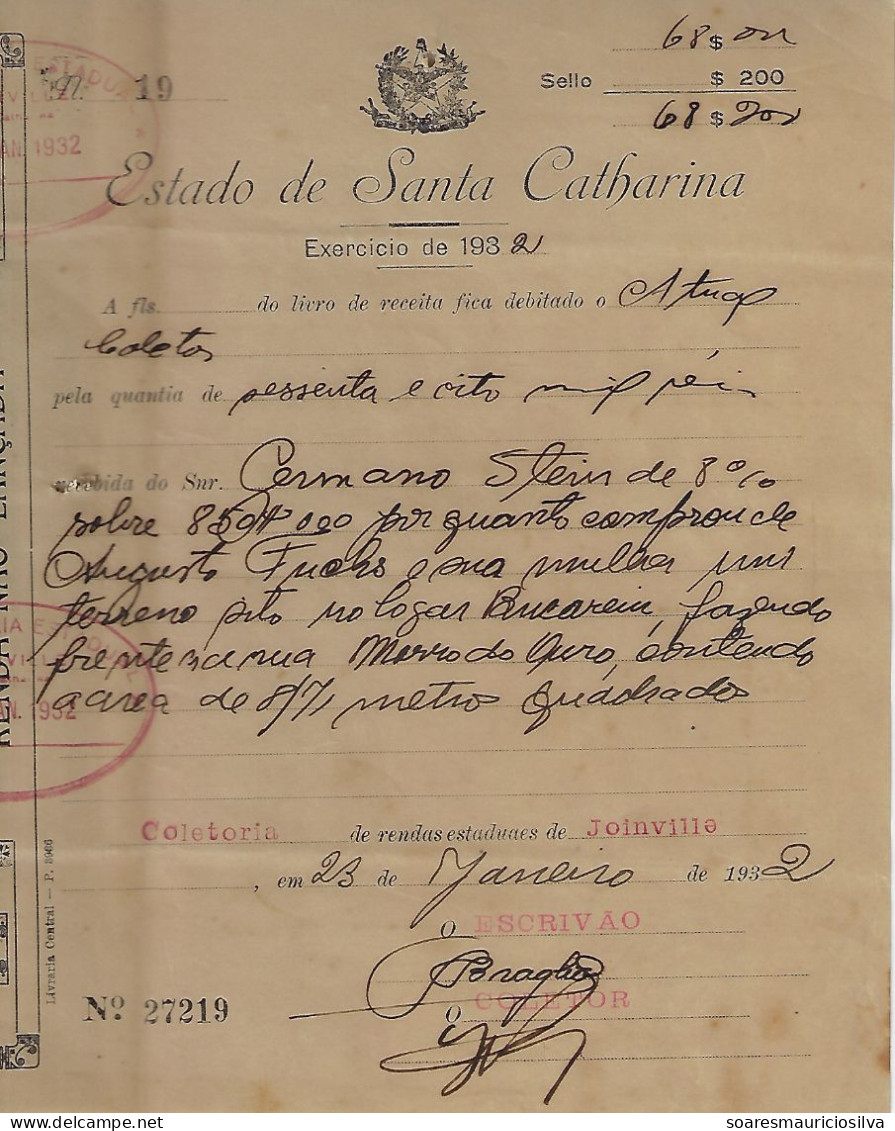 68 $
Nº 19
Sello $ 200
68 $ 200
ESTADUAL
AN. 1932
Estado de Santa Catharina
Exercicio de 1932
A fls. do livro de receita fica debitado o Actual
Coletor
pela quantia de sessenta e oito mil réis
recebida do Snr. Germano Stein de 8%
sobre 850$000 por quanto comprou de
Augusto Fuchs e sua mulher um
terreno sito no logar Bucarein, fazendo
frente na rua Morro do Ouro, contendo
a area de metros quadrados
RENDA NÃO LANÇADA
AN. 1932
Coletoria de rendas estaduaes de Joinville
, em 23 de Janeiro de 1932
O ESCRIVÃO
Braglia
Nº 27219
O COLETOR
Livraria Central — P. 3966
DELCAMPE.NET
soaresmauriciosilva